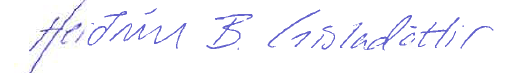 Heiðrún B. Gísladóttir